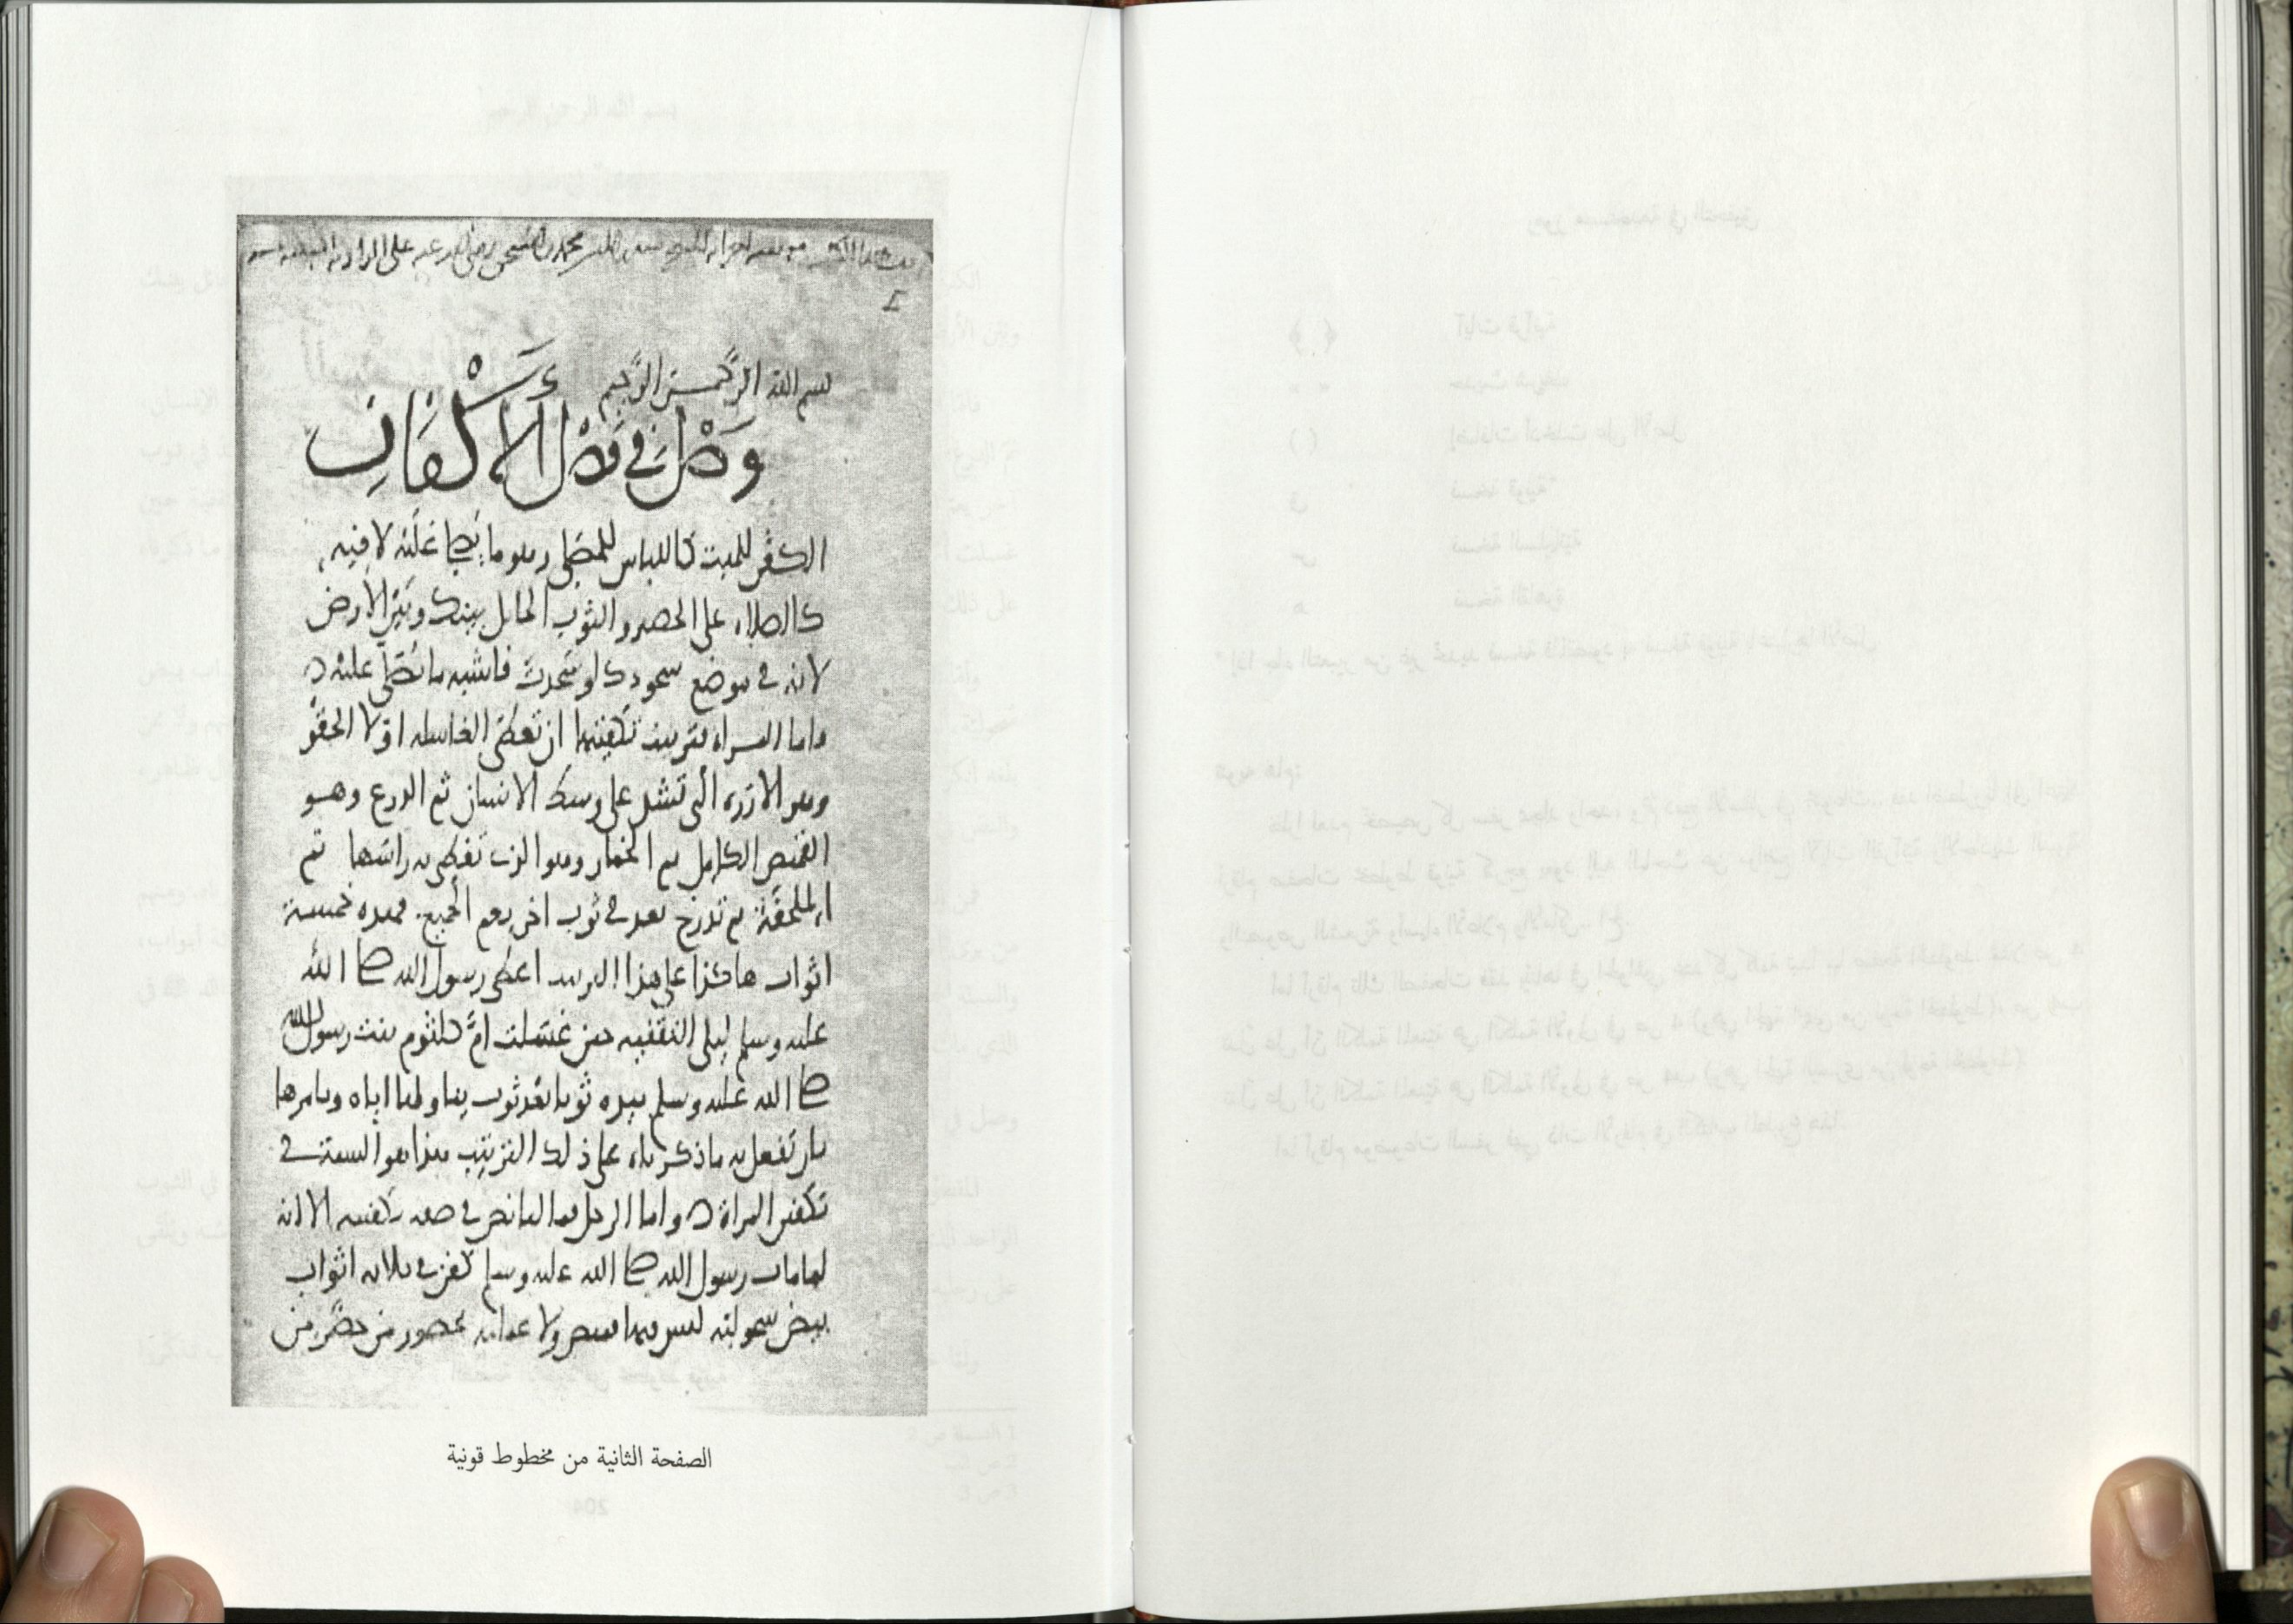 بسم الله الرحمن الرحيم
وَصْل في فَصْل الأَكْفَانِ
الكفن للميت كاللباس للمصلي وهو ما يصلى عليه لا فيه
كالصلاه على الحصر والثوب الحايل بينك وبين الارض
لانه في موضع سجودك لو سجدت فاشبه ما يصلى عليه
واما المراه فترتيب تكفينها ان تعطى الغاسله اولا الحقو
وهو الازره التي تشد على وسط الانسان ثم الدرع وهو
القميص الكامل ثم الخمار وهو الذي تغطى به راسها ثم
الملحفة ثم تدرج بعد في ثوب اخر يعم الجميع فهذه خمسة
اثواب هاكذا على هذا الترتيب اعطى رسول الله صلى الله
عليه وسلم ليلى الثقفيه حين غسلت أم كلثوم بنت رسول الله
صلى الله عليه وسلم بيده ثوبا بعد ثوب يناولها اياه ويامرها
بان تفعل به ما ذكرناه على ذلك الترتيب فهذا هو السنة في
تكفين المراة واما الرجل فما لنا نص في صفه تكفينه الا انه
لما مات رسول الله صلى الله عليه وسلم كفن في ثلاثه اثواب
بيض سحولية ليس فيها قميص ولا عمامه بحضور من حضر من
الصفحة الثانية من مخطوط قونية